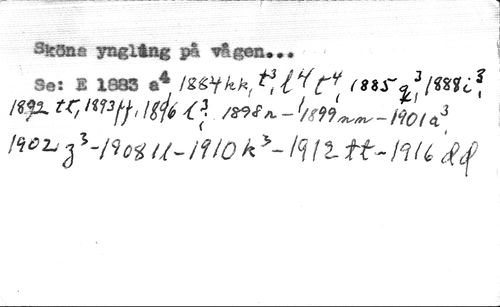 Sköna yngling på vågen...
Se: E 1883 a⁴ 1884 kk, t³, l⁴ t⁴, 1885 q³, 1888 i³,
1892 tt, 1893 ff, 1896 l³, 1898 n - 1899 nn - 1901 a³,
1902 z³ - 1908 ll - 1910 k³ - 1912 tt - 1916 dd